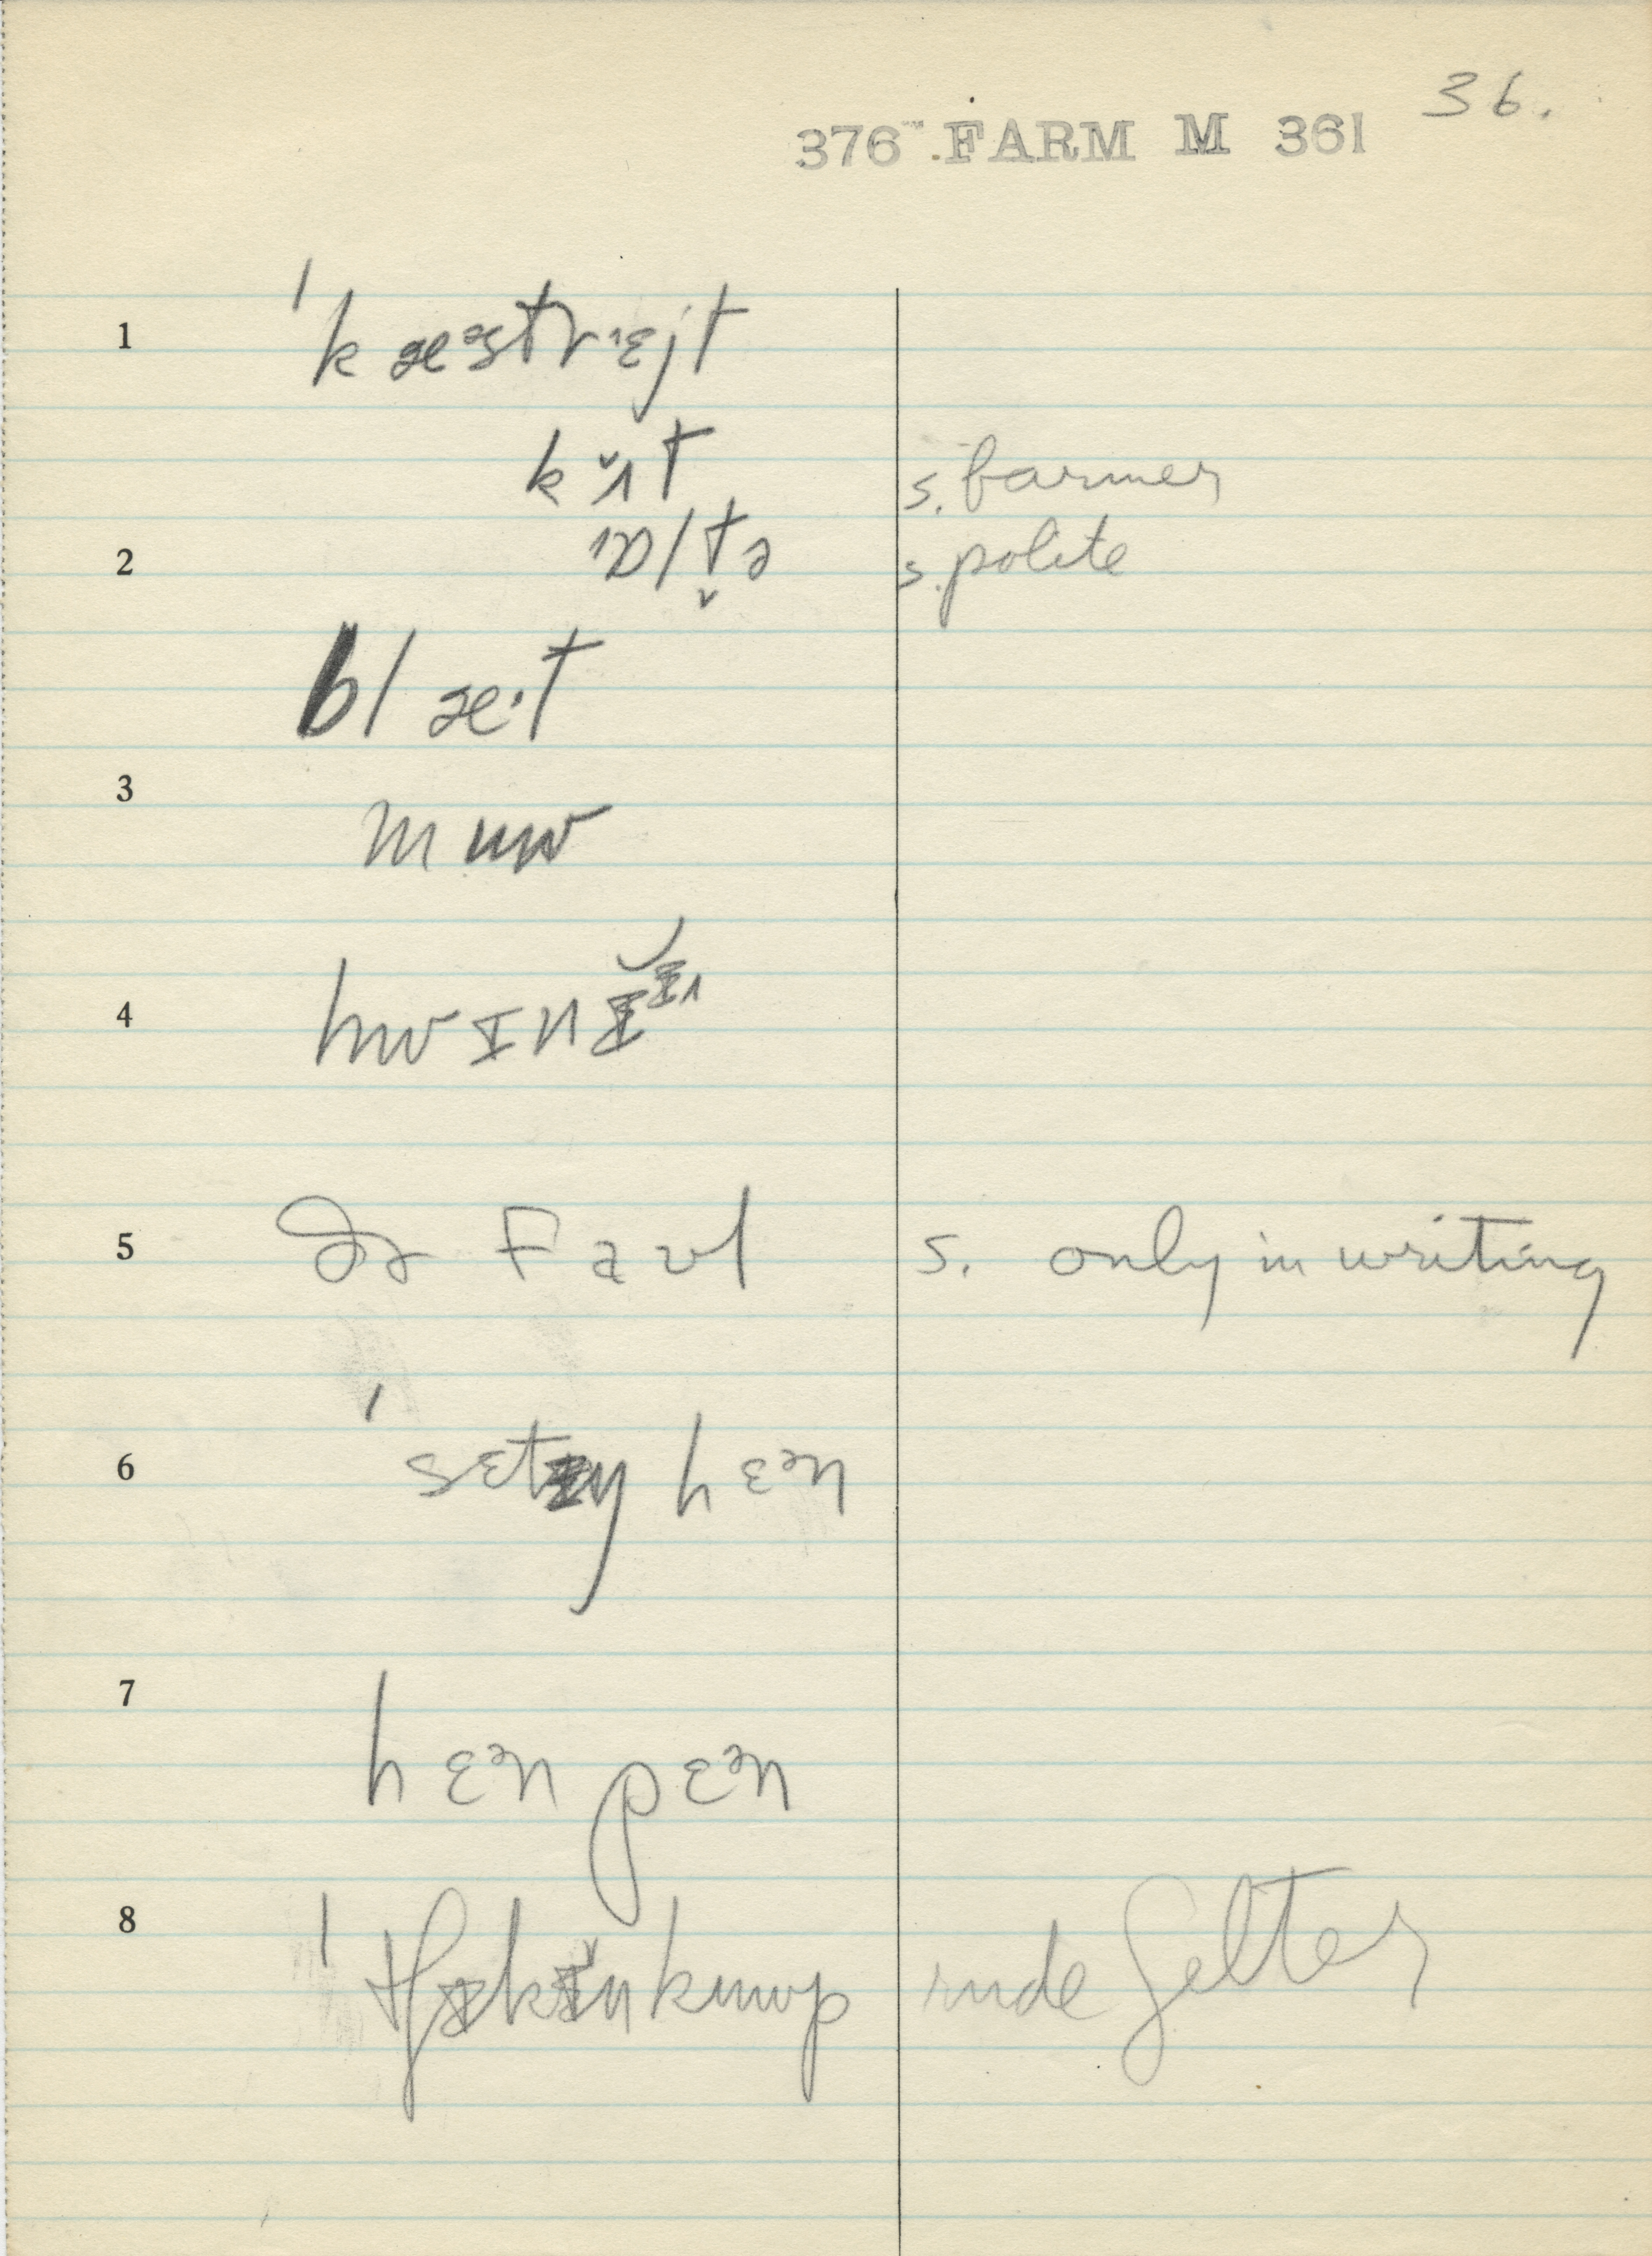 36.
376 FARM M 361
1 ˈkæᵊstrᵻɛjt
kʌ̆t s. farmer
2 ɒltə s. polite
blæ·t
3 muw
4 hwɪnɪ
5 ðə faʊl s. only in writing
6 ˈsɛtɪŋ hɛᵊn
7 hɛᵊn pɛᵊn
8 ˈtʃɪkɪn kuwp rude shelter